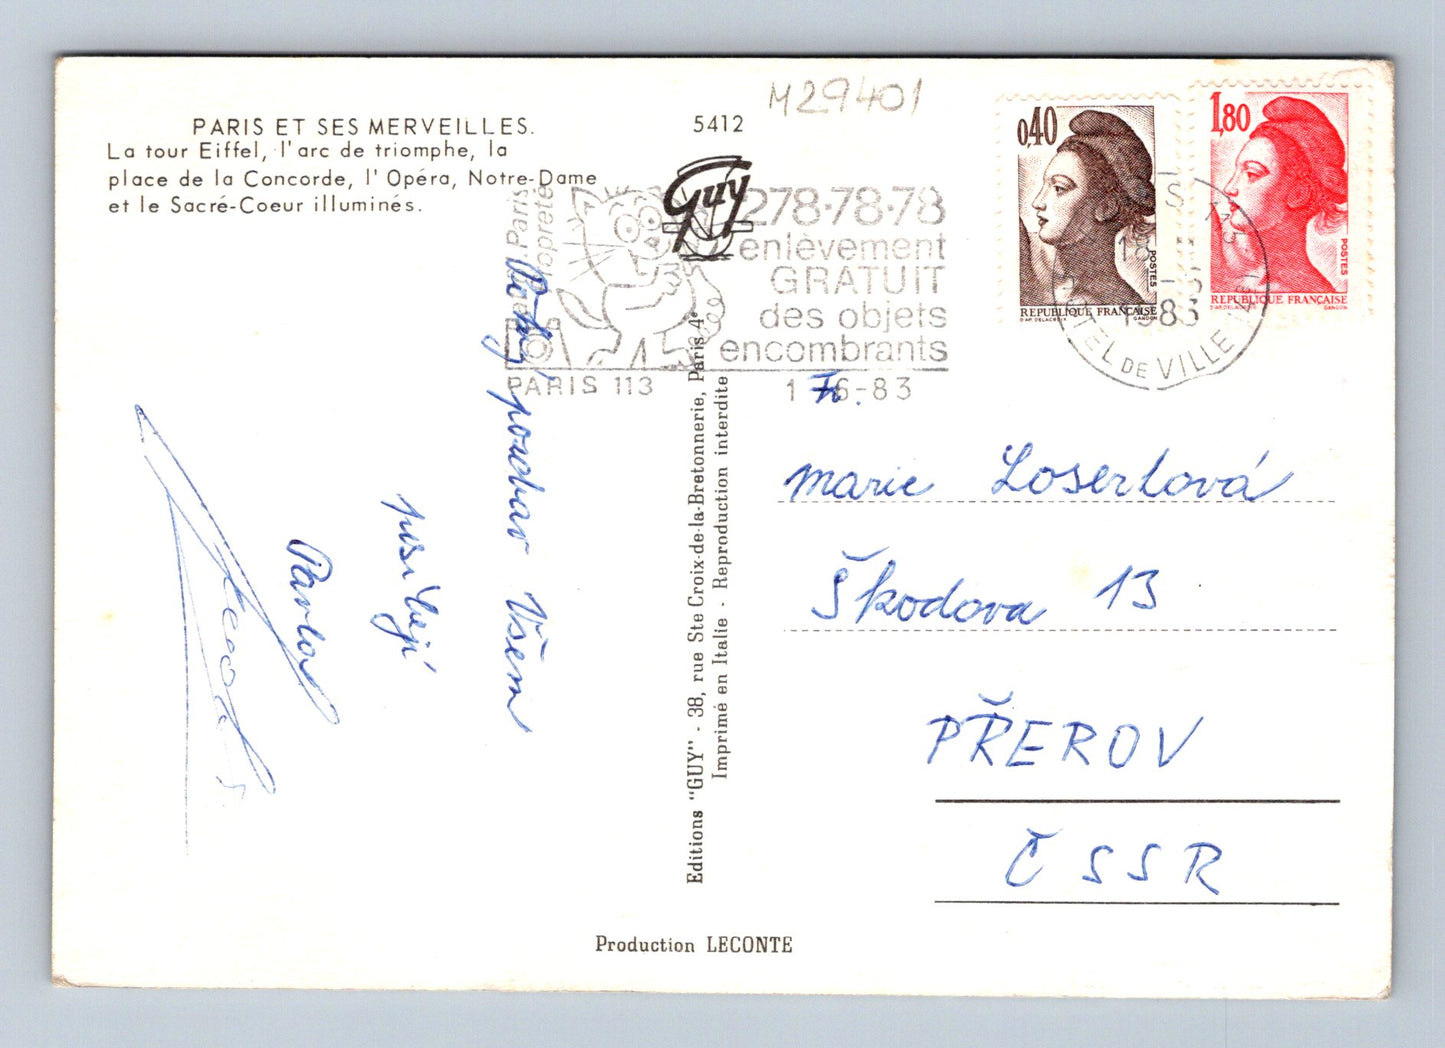 M29401
PARIS ET SES MERVEILLES.
La tour Eiffel, l'arc de triomphe, la
place de la Concorde, l'Opéra, Notre-Dame
et le Sacré-Coeur illuminés.
5412
Guy
Paris
propreté
278·78·78
enlèvement
GRATUIT
des objets
encombrants
PARIS 113
-6-83
0,40
POSTES
REPUBLIQUE FRANÇAISE
D'AP. DELACROIX GANDON
1,80
POSTES
REPUBLIQUE FRANÇAISE
D'AP. DELACROIX GANDON
18
1983
HOTEL DE VILLE
pozdrav Všem
posílají
Pavla
Editions "GUY" - 38, rue Ste Croix-de-la-Bretonnerie, Paris 4e
Imprimé en Italie - Reproduction interdite
Marie Losertová
Škodova 13
PŘEROV
ČSSR
Production LECONTE